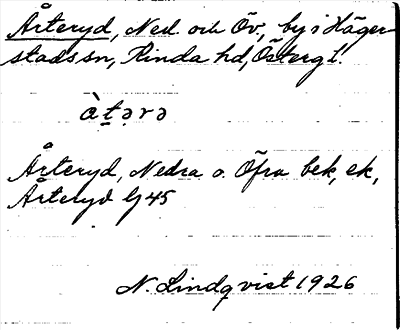 Årteryd, Ned. och Öv., by i Häger-
stads sn, Kinda hd, Östergl.
å̀t̠ərə
Årteryd, Nedra o. Öfra bek, ek,
Årteryd GJ 45
N. Lindqvist 1926